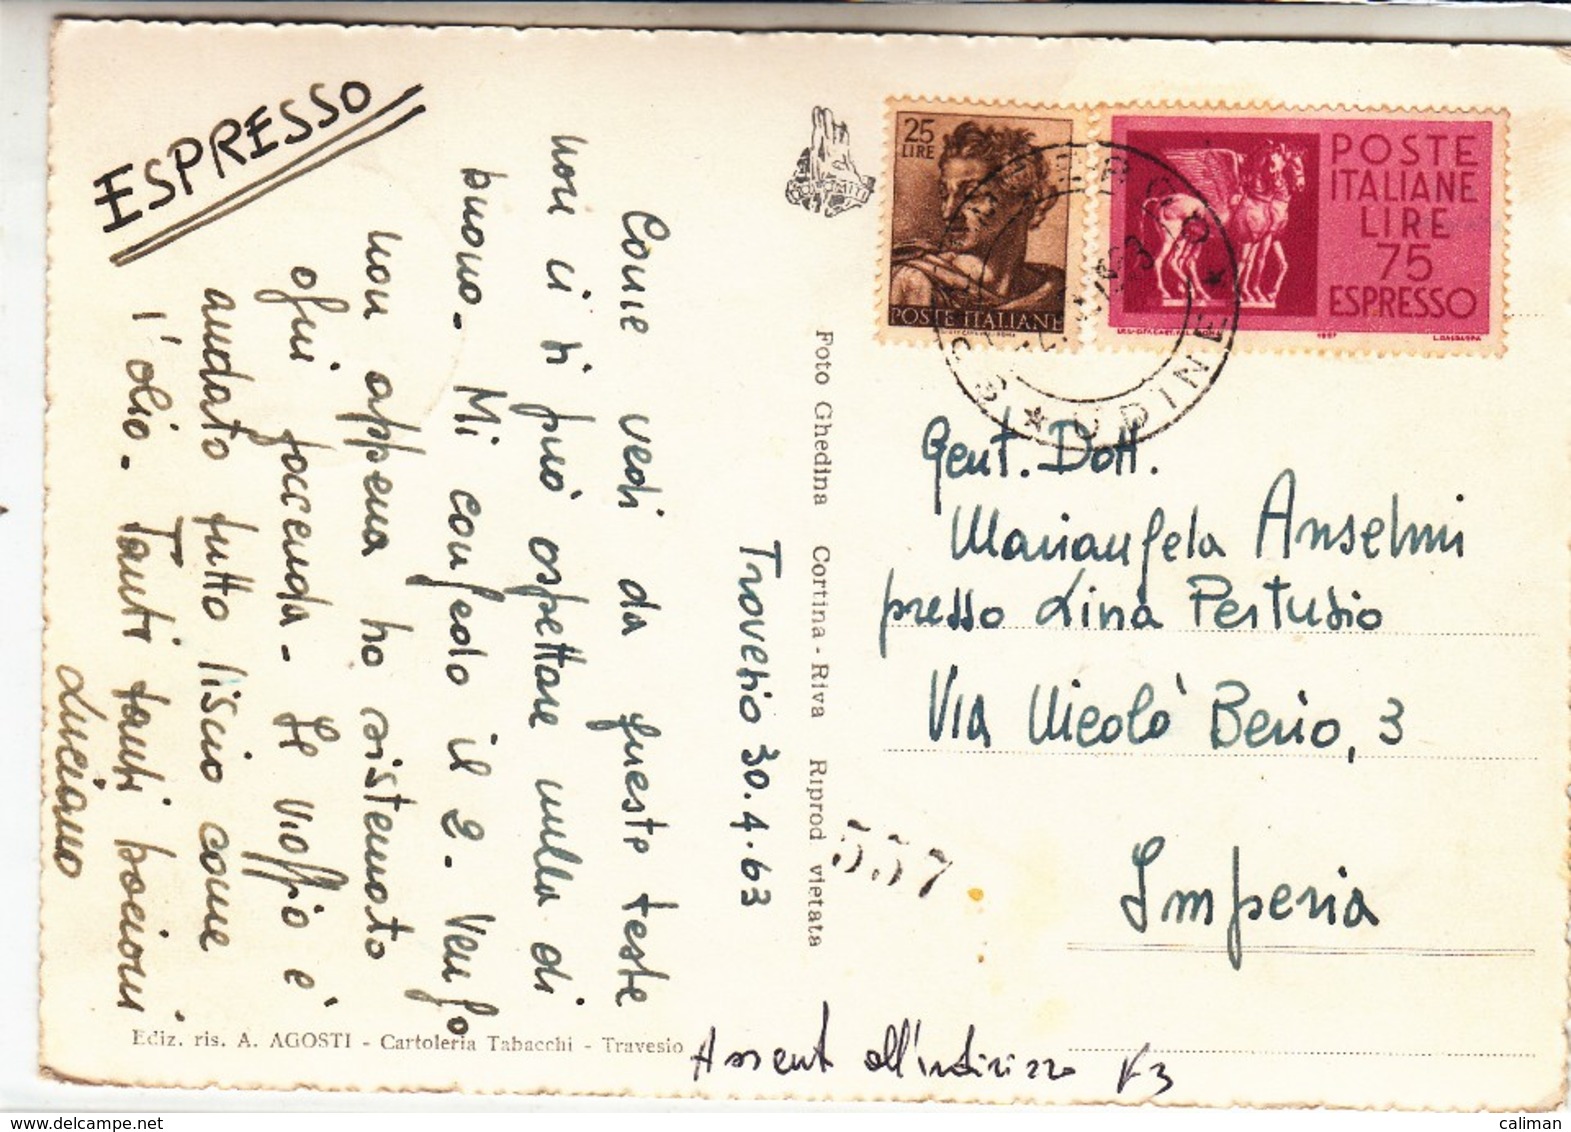 ESPRESSO
Travesio 30.4.63
Come vedi da queste teste
non ci si può aspettare nulla di
buono. Mi congedo il 2. Vengo
non appena ho sistemato
ogni faccenda. Il viaggio è
andato tutto liscio come
l'olio. Tanti tanti bacioni
Luciano
Ediz. ris. A. AGOSTI - Cartoleria Tabacchi - Travesio
Foto Ghedina Cortina - Riva Riprod vietata
25
LIRE
POSTE ITALIANE
POSTE
ITALIANE
LIRE
75
ESPRESSO
UDINE
Gent. Dott.
Mariangela Anselmi
presso Lina Pertusio
Via Nicolò Berio, 3
Imperia
557
Assente all'indirizzo
caliman
www.delcampe.net